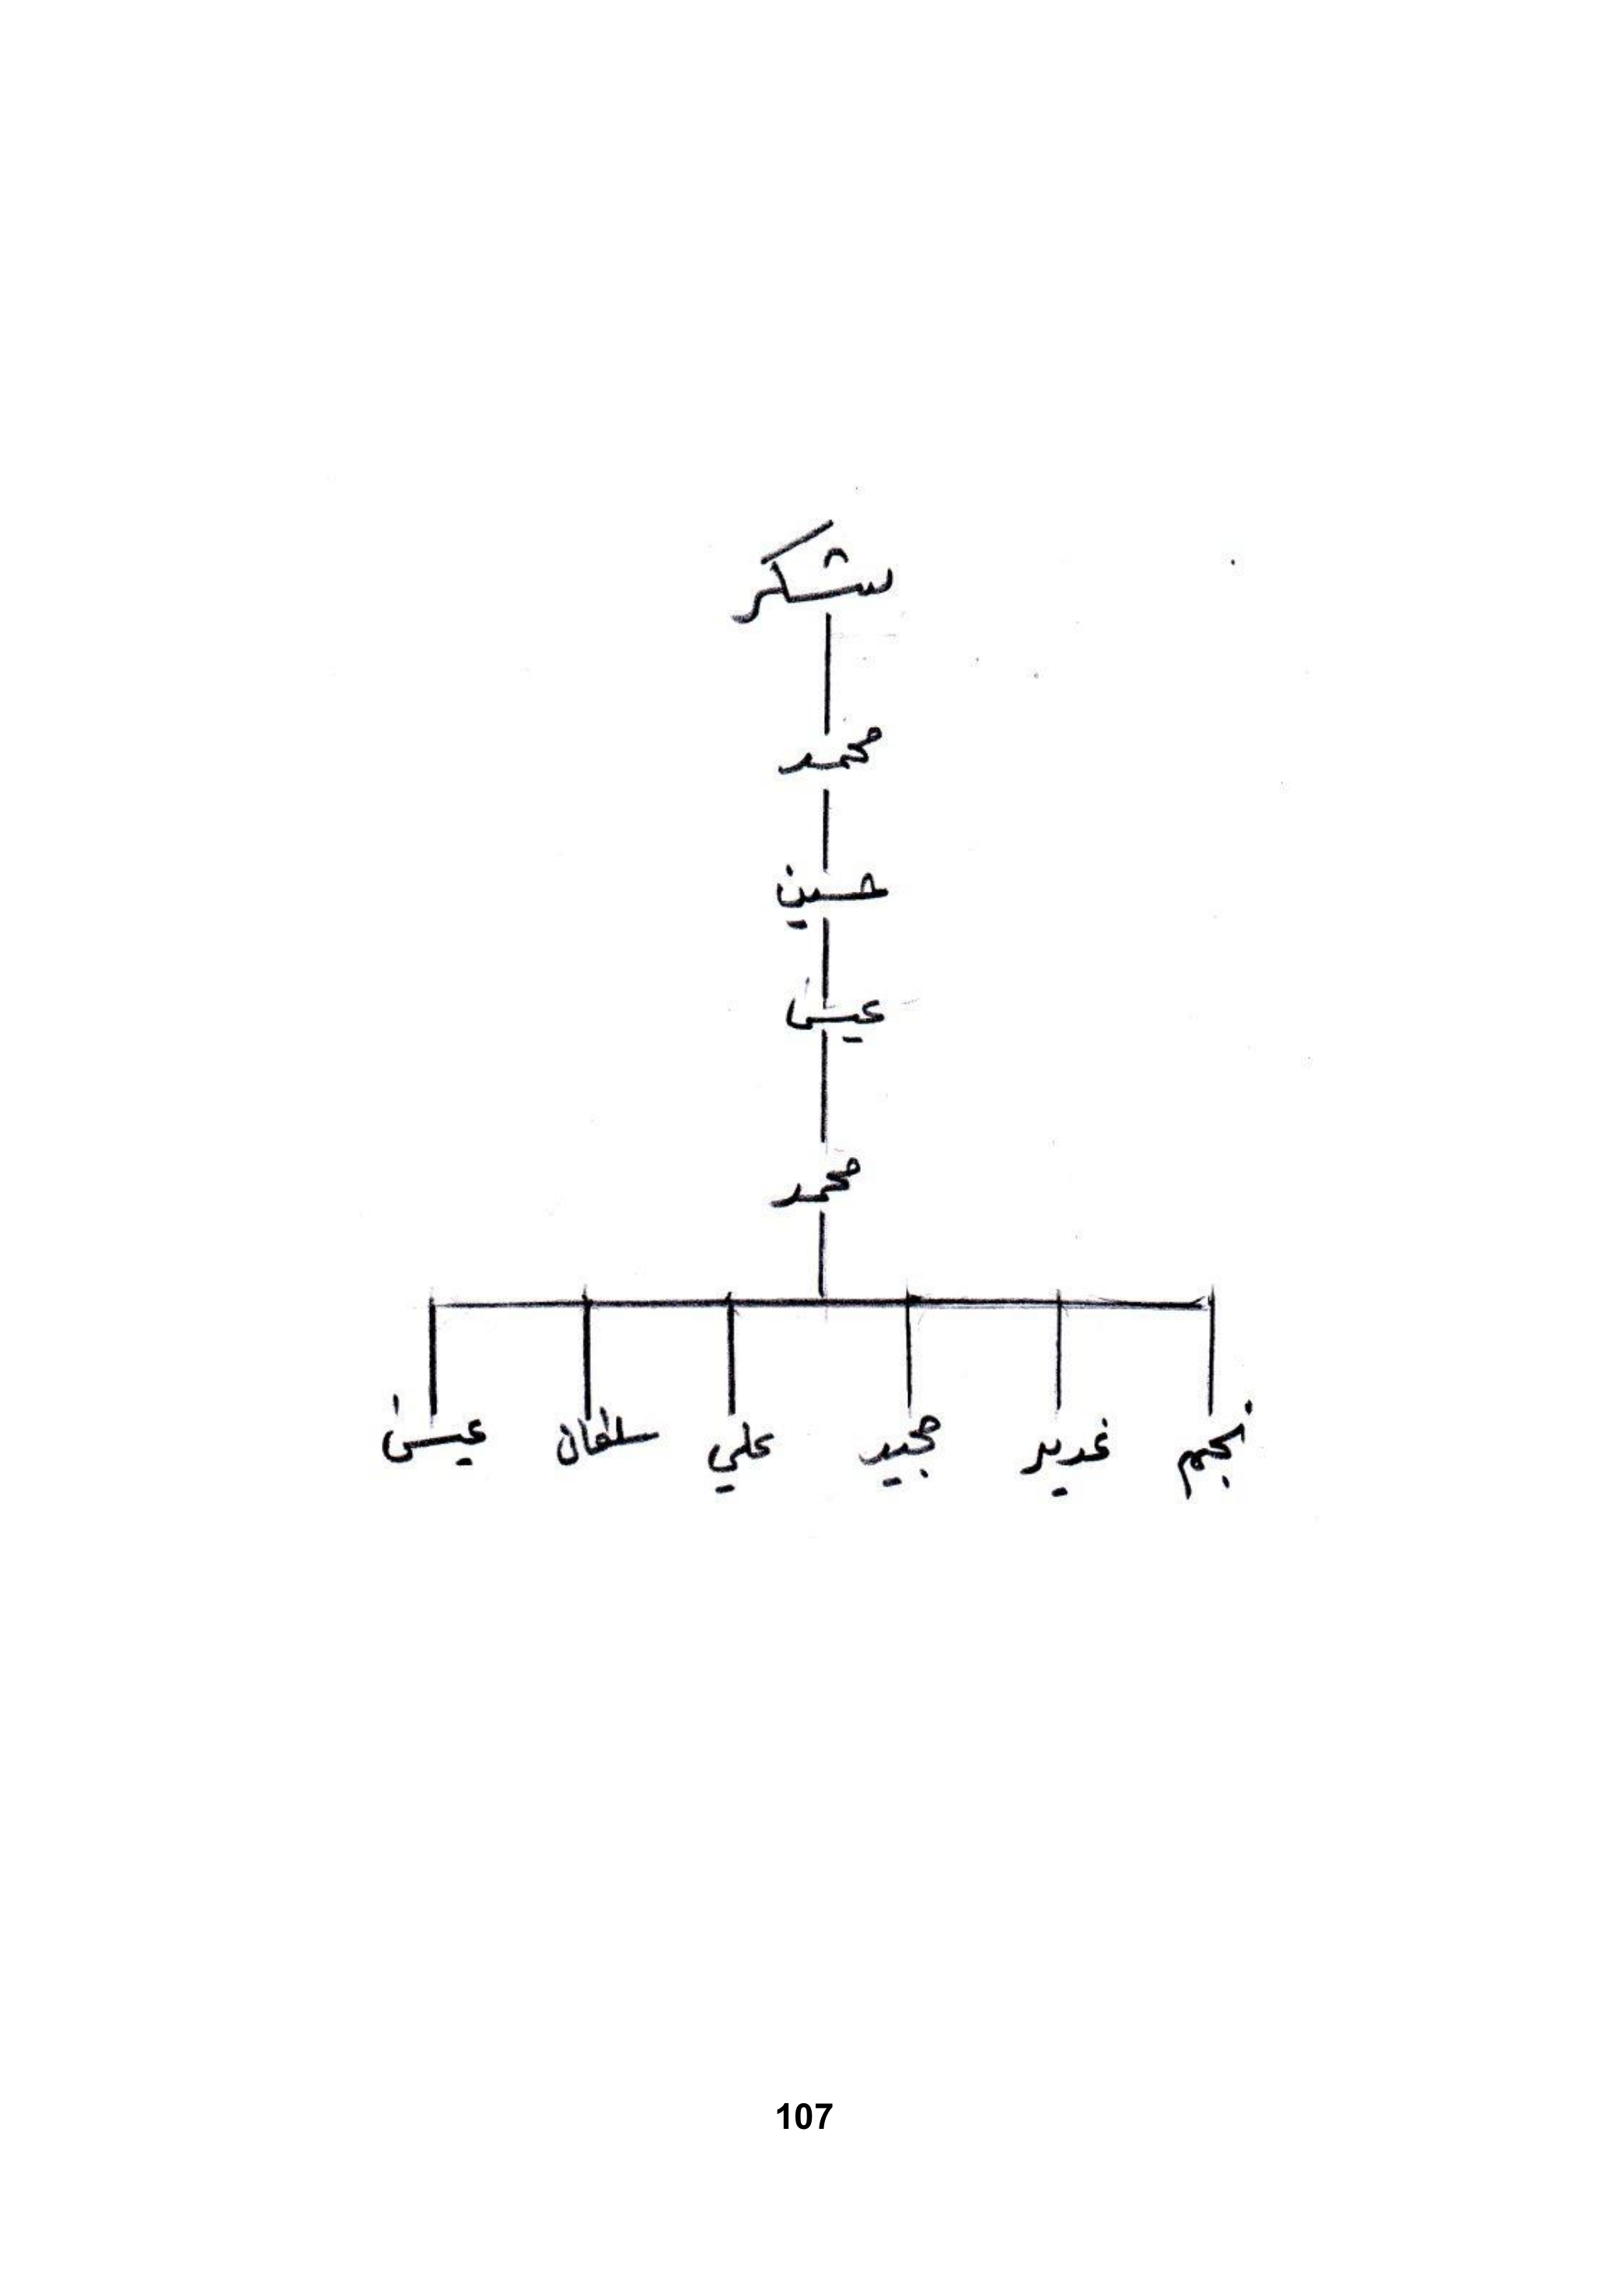 شكر
محمد
حسين
عيسى
محمد
نجم غدير مجيد علي سلطان عيسى
107